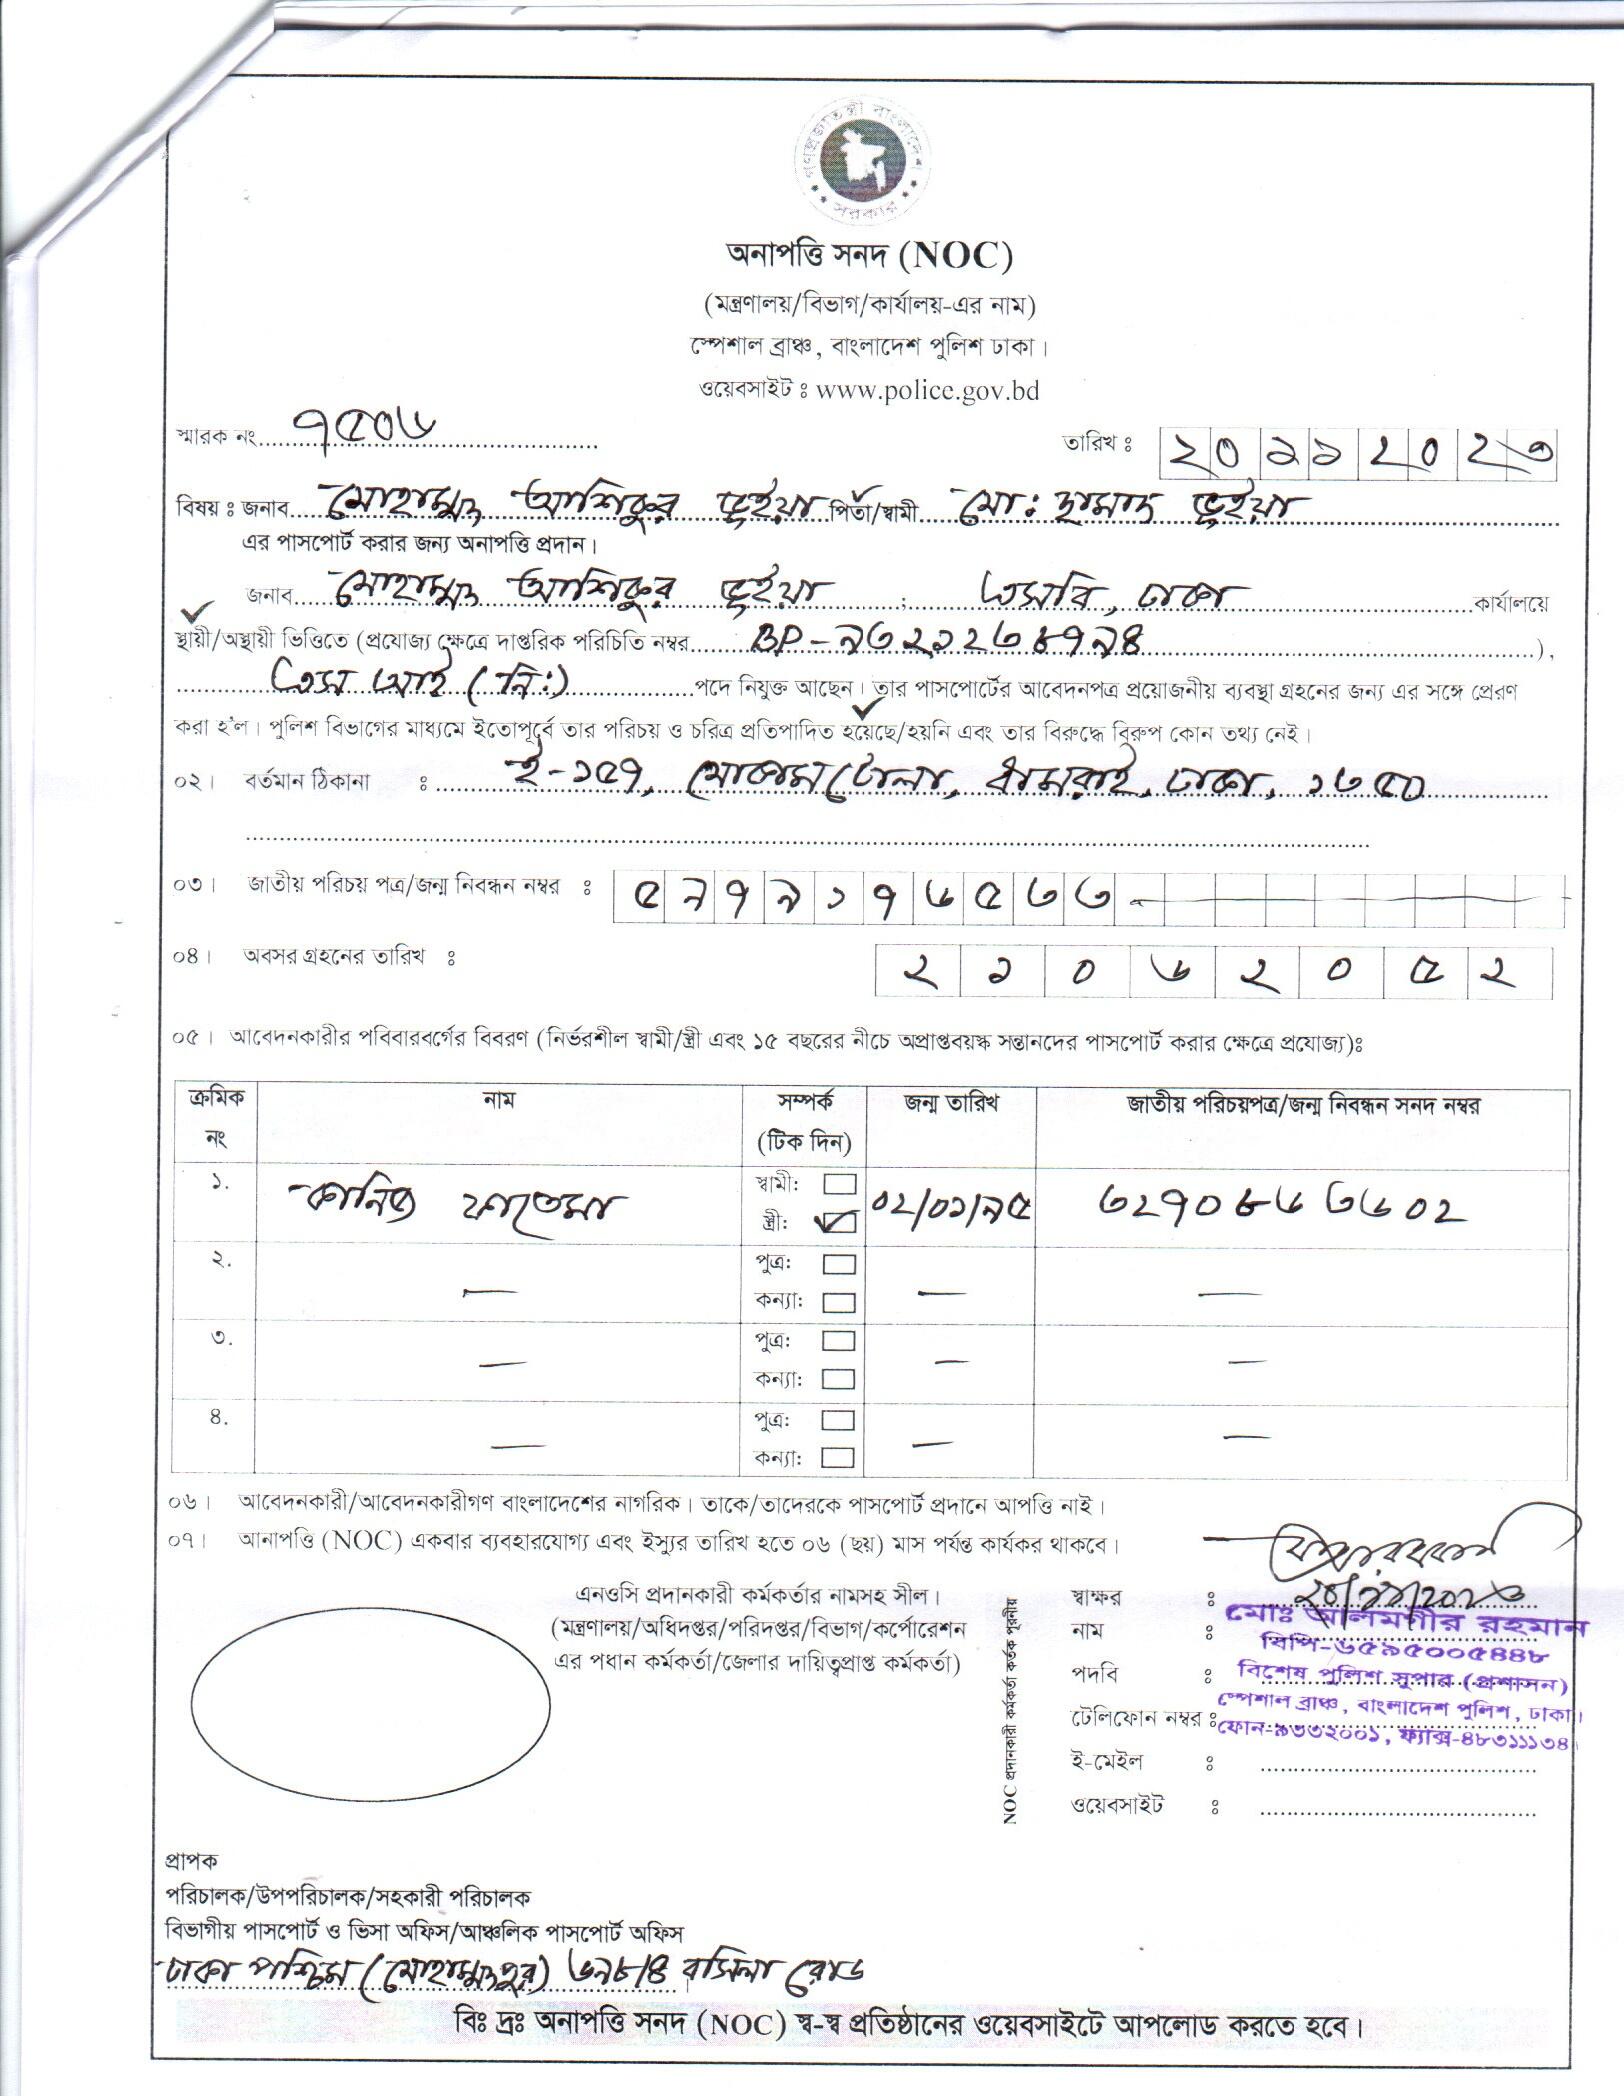 গণপ্রজাতন্ত্রী বাংলাদেশ
সরকার
অনাপত্তি সনদ (NOC)
(মন্ত্রণালয়/বিভাগ/কার্যালয়-এর নাম)
স্পেশাল ব্রাঞ্চ, বাংলাদেশ পুলিশ ঢাকা।
ওয়েবসাইট ঃ www.police.gov.bd
স্মারক নং ৭৫০৬ তারিখ ঃ ২০১১২০২৩
বিষয় ঃ জনাব মোহাম্মদ আশিকুর ভূইয়া পিতা/স্বামী মো: ভূইয়া
এর পাসপোর্ট করার জন্য অনাপত্তি প্রদান।
জনাব মোহাম্মদ আশিকুর ভূইয়া ; এসবি, ঢাকা কার্যালয়ে
স্থায়ী/অস্থায়ী ভিত্তিতে (প্রযোজ্য ক্ষেত্রে দাপ্তরিক পরিচিতি নম্বর BP-৯৩২১২৩৪৭৯৪),
এস আই (নি:) পদে নিযুক্ত আছেন। তার পাসপোর্টের আবেদনপত্র প্রয়োজনীয় ব্যবস্থা গ্রহনের জন্য এর সঙ্গে প্রেরণ
করা হ'ল। পুলিশ বিভাগের মাধ্যমে ইতোপূর্বে তার পরিচয় ও চরিত্র প্রতিপাদিত হয়েছে/হয়নি এবং তার বিরুদ্ধে বিরুপ কোন তথ্য নেই।
০২। বর্তমান ঠিকানা ঃ ই-১৫৭, মোকামটোলা, ধামরাই, ঢাকা, ১৩৫০
০৩। জাতীয় পরিচয় পত্র/জন্ম নিবন্ধন নম্বর ঃ ৫৯৭৯১৭৬৫৩৩
০৪। অবসর গ্রহনের তারিখ ঃ ২১০৬২০৫২
০৫। আবেদনকারীর পবিবারবর্গের বিবরণ (নির্ভরশীল স্বামী/স্ত্রী এবং ১৫ বছরের নীচে অপ্রাপ্তবয়স্ক সন্তানদের পাসপোর্ট করার ক্ষেত্রে প্রযোজ্য)ঃ
ক্রমিক নং নাম সম্পর্ক (টিক দিন) জন্ম তারিখ জাতীয় পরিচয়পত্র/জন্ম নিবন্ধন সনদ নম্বর
১. কানিজ ফাতেমা স্বামী: স্ত্রী: ০২/০১/৯৫ ৩২৭০৮৬৩৬০২
২. — পুত্র: কন্যা: — —
৩. — পুত্র: কন্যা: — —
৪. — পুত্র: কন্যা: — —
০৬। আবেদনকারী/আবেদনকারীগণ বাংলাদেশের নাগরিক। তাকে/তাদেরকে পাসপোর্ট প্রদানে আপত্তি নাই।
০৭। আনাপত্তি (NOC) একবার ব্যবহারযোগ্য এবং ইস্যুর তারিখ হতে ০৬ (ছয়) মাস পর্যন্ত কার্যকর থাকবে।
এনওসি প্রদানকারী কর্মকর্তার নামসহ সীল।
(মন্ত্রণালয়/অধিদপ্তর/পরিদপ্তর/বিভাগ/কর্পোরেশন
এর পধান কর্মকর্তা/জেলার দায়িত্বপ্রাপ্ত কর্মকর্তা)
NOC প্রদানকারী কর্মকর্তা কর্তৃক পূরনীয়
স্বাক্ষর ঃ
নাম ঃ মোঃ আলমগীর রহমান
বিপি-৬৫৯৫০০৫৪৪৮
পদবি ঃ বিশেষ পুলিশ সুপার (প্রশাসন)
স্পেশাল ব্রাঞ্চ, বাংলাদেশ পুলিশ, ঢাকা।
টেলিফোন নম্বর ঃ ফোন-৯৩৩২০০১, ফ্যাক্স-৪৮৩১১১৩৪।
ই-মেইল ঃ
ওয়েবসাইট ঃ
প্রাপক
পরিচালক/উপপরিচালক/সহকারী পরিচালক
বিভাগীয় পাসপোর্ট ও ভিসা অফিস/আঞ্চলিক পাসপোর্ট অফিস
ঢাকা পশ্চিম (মোহাম্মদপুর) ৬৯৮/৪ বসিলা রোড
বিঃ দ্রঃ অনাপত্তি সনদ (NOC) স্ব-স্ব প্রতিষ্ঠানের ওয়েবসাইটে আপলোড করতে হবে।